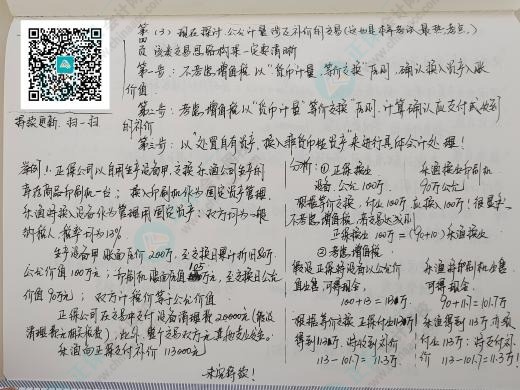 第四页
(3) 现在探计,公允计量涉及补价的交易(这也是本年考试最热考点.)
该类交易思路构架一定要清晰
第一步:不考虑增值税以"货币计量、等价交换"原则,确认换入资产入账
价值.
第二步:考虑增值税以"货币计量、等价交换"原则,计算确认应支付或收到
的补价
第三步:以"处置自有资产,换入非货币性资产"来进行具体会计处理!
释放更新 扫一扫
举例1.正保公司以自用生产设备甲,交换乐渔公司生产的
库存商品印刷机一台;换入印刷机作为固定资产管理.
乐渔对换入设备作为管理用固定资产;双方均为一般
纳税人,税率均为13%
生产设备甲账面原价200万,至交换日累计折旧80万.
公允价值100万元;印刷机账面价值105万元,至交换日公允
价值90万元;双方计税价等于公允价值.
正保公司在交易中支付设备清理费20000元(假设
清理费无相关税费);此外,整个交易双方无其他支出发生.
乐渔向正保支付补价113000元
未完释放!
分析:①正保换出
设备,公允100万.
乐渔换出印刷机
90万公允
根据等价交换,付出100万应换入100万!很显然
不考虑增值税,若交易达成则
正保换出100万=(90+10)乐渔换出
②考虑增值税
假设正保将设备以公允价
直出售可得现金.
100+13=113万
乐渔将印刷机出售
可得现金.
90+11.7=101.7万
根据等价交换正保付出113万
得到113万:应收到补价
113-101.7=11.3万.
乐渔得到113万,亦须
付出113万:应支付补
价 113-101.7=11.3万!